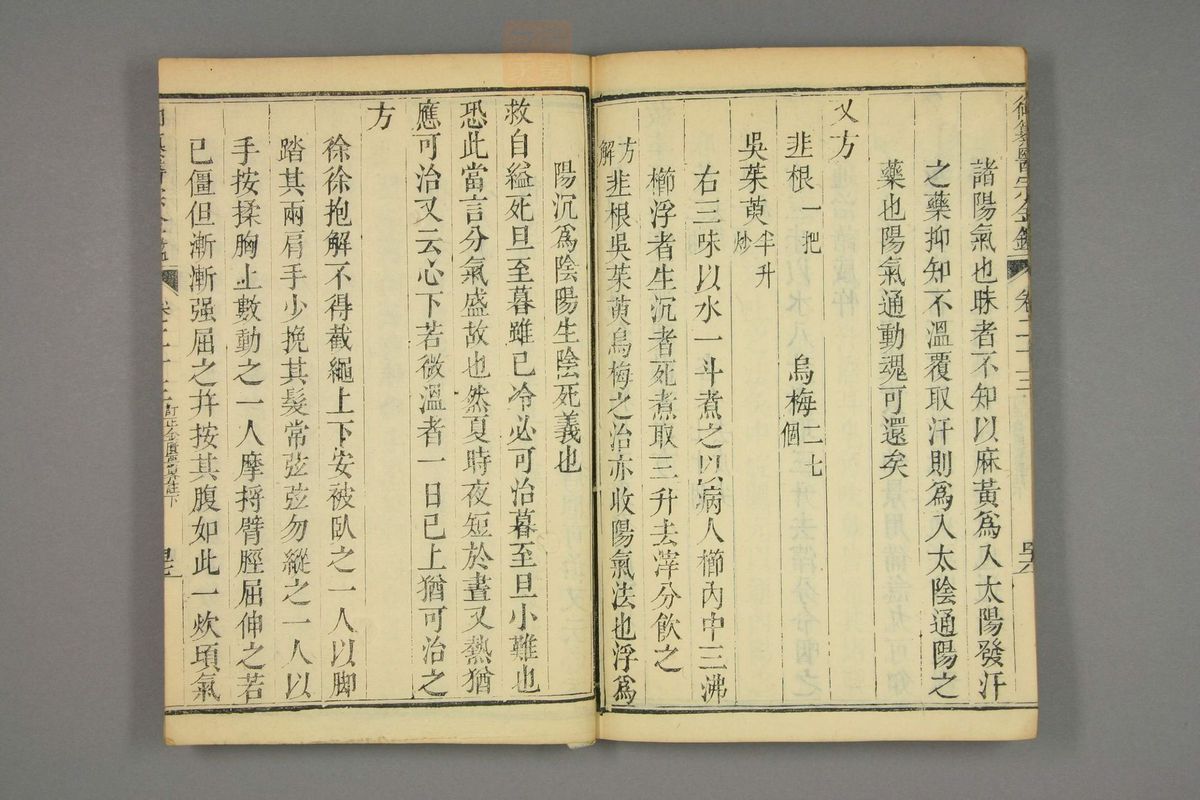 諸陽氣也昧者不知以麻黃爲入太陽發汗
之藥抑知不溫覆取汗則爲入太陰通陽之
藥也陽氣通動魂可還矣
又方
韭根一把 烏梅二七個
吳茱萸半升炒
右三味以水一斗煮之以病人櫛內中三沸
櫛浮者生沉者死煮取三升去滓分飮之
方解韭根吳茱萸烏梅之治亦收陽氣法也浮爲
陽沉爲陰陽生陰死義也
救自縊死旦至暮雖已冷必可治暮至旦小難也
恐此當言分氣盛故也然夏時夜短於晝又熱猶
應可治又云心下若微溫者一日已上猶可治之
方
徐徐抱解不得截繩上下安被臥之一人以脚
踏其兩肩手少挽其髮常弦弦勿縱之一人以
手按揉胸上數動之一人摩捋臂脛屈伸之若
已僵但漸漸强屈之幷按其腹如此一炊頃氣